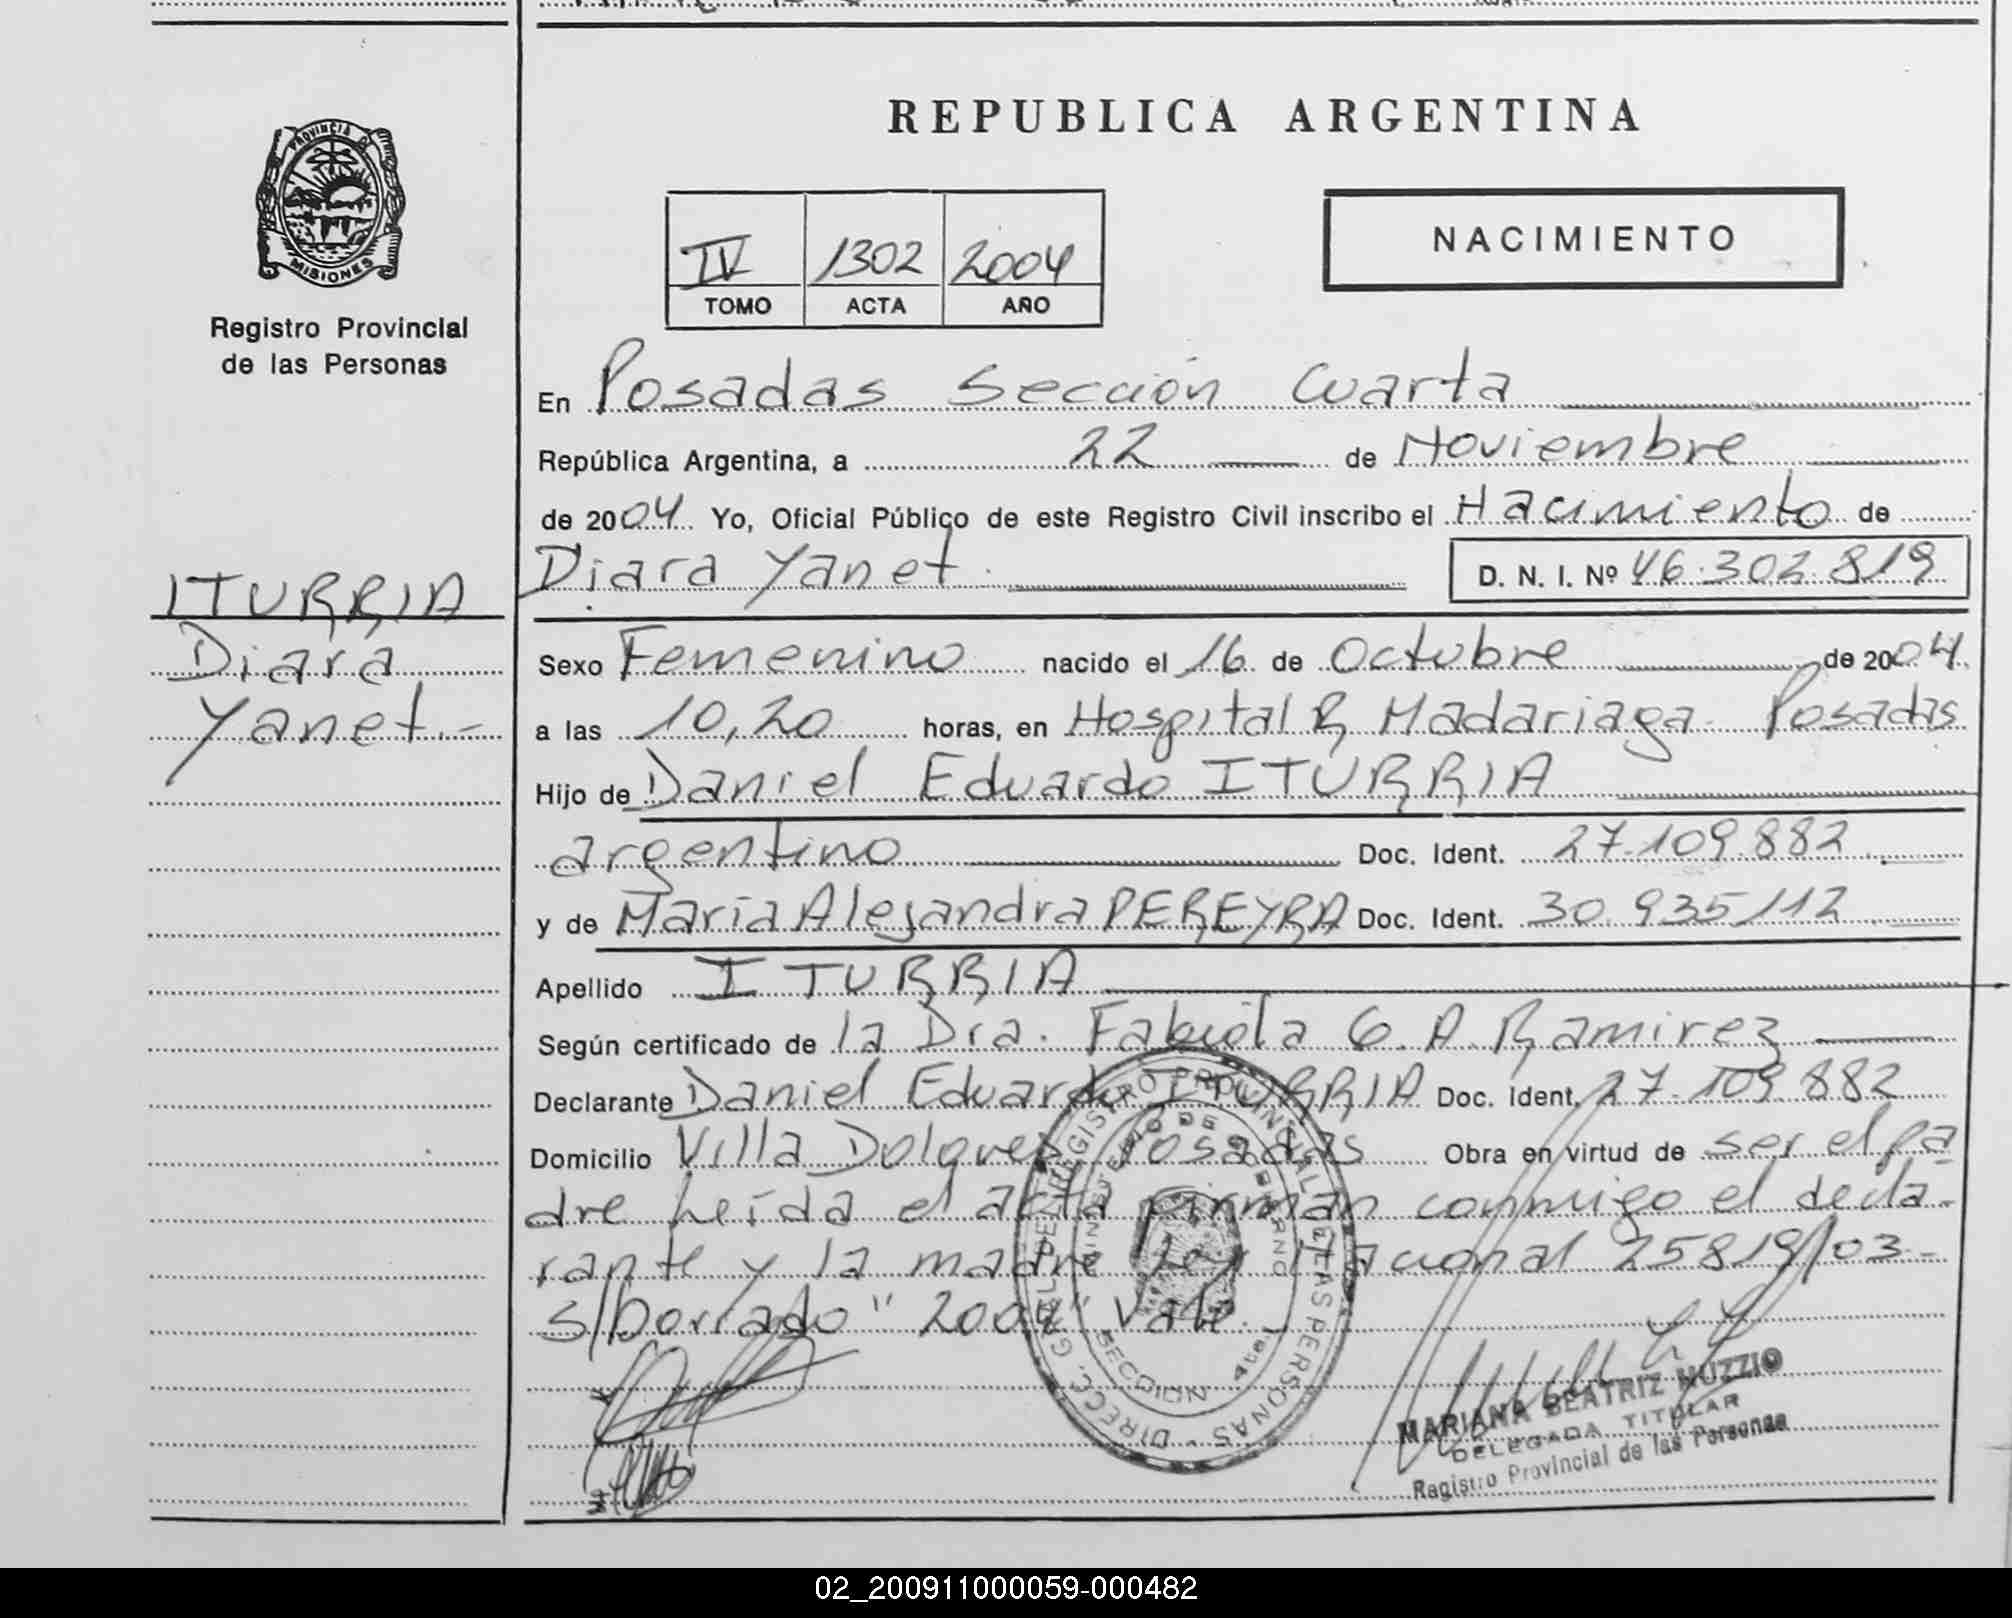 REPUBLICA ARGENTINA
PROVINCIA DE
MISIONES
Registro Provincial
de las Personas
IV 1302 2004
TOMO ACTA AÑO
NACIMIENTO
En Posadas Sección Cuarta
República Argentina, a 22 de Noviembre
de 2004 Yo, Oficial Público de este Registro Civil inscribo el Nacimiento de
Diara Yanet D. N. I. Nº 46.302.819
ITURRIA
Diara
Yanet.-
Sexo Femenino nacido el 16 de Octubre de 2004.
a las 10,20 horas, en Hospital R Madariaga Posadas
Hijo de Daniel Eduardo ITURRIA
argentino Doc. Ident. 27.109.882
y de María Alejandra PEREYRA Doc. Ident. 30.935112
Apellido ITURRIA
Según certificado de la Dra. Fabiola G. A. Ramirez
Declarante Daniel Eduardo ITURRIA Doc. Ident. 27.109.882
Domicilio Villa Dolores Posadas Obra en virtud de ser el pa
dre Leída el acta firman conmigo el decla-
rante y la madre Ley Nacional 25819/03-
S/borrado "2004" Vale.-
DIRECC. GRAL. DEL REGISTRO PROVINCIAL DE LAS PERSONAS
MINISTERIO DE GOBIERNO
SECCION 4ta.
MARIANA BEATRIZ MUZZIO
DELEGADA TITULAR
Registro Provincial de las Personas
02_200911000059-000482